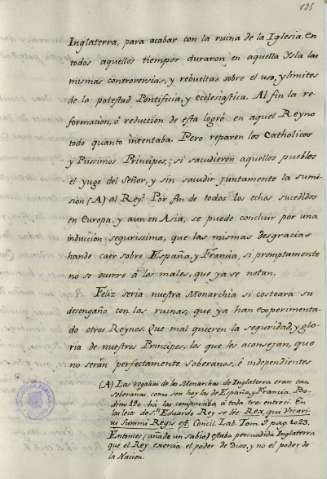 135
Inglaterra, para acabar con la ruina de la Iglesia. En
todos aquellos tiempos duraron en aquella Ysla las
mismas controversias, y rebueltas sobre el uso, y limites
de la potestad Pontificia, y ecclesiastica. Al fin la re-
formacion, ó reduccion de esta logró en aquel Reyno
todo quanto intentaba. Pero reparen los Catholicos
y Piissimos Principes, si sacudieron aquellos pueblos
el yugo del Señor, y sin sacudir juntamente la sumi-
sion (A) al Rey? Por fin de todos los echos sucedidos
en Europa, y aun en Asia, se puede concluir por una
induccion segurissima, que las mismas desgracias
hande caer sobre España, y Francia, si promptamente
no se ocurre á los males, que ya se notan.
Feliz seria nuestra Monarchia si costeara su
desengaño con las ruinas, que ya han experimenta-
do otros Reynos. Que mal quieren la seguridad, y glo-
ria de nuestros Principes, los que les aconsejan, que
no serán perfectamente soberanos, é independientes
(A) Las regalias de los Monarchas de Inglaterra eran tan
soberanas, como son hoy las de España, y Francia. Po-
dino
ha las comparaba á todo tres entre si. En
las leies de Sn. Eduardo Rey se lée Rex, qui Vicari-
us Summi Regis est, Concil. Lab. Tom. 9. pag. 1023.
Entonces (añade un sabio) estaba persuadida Inglaterra
que el Rey exercia el poder de Dios, y no el poder de
la Nacion.